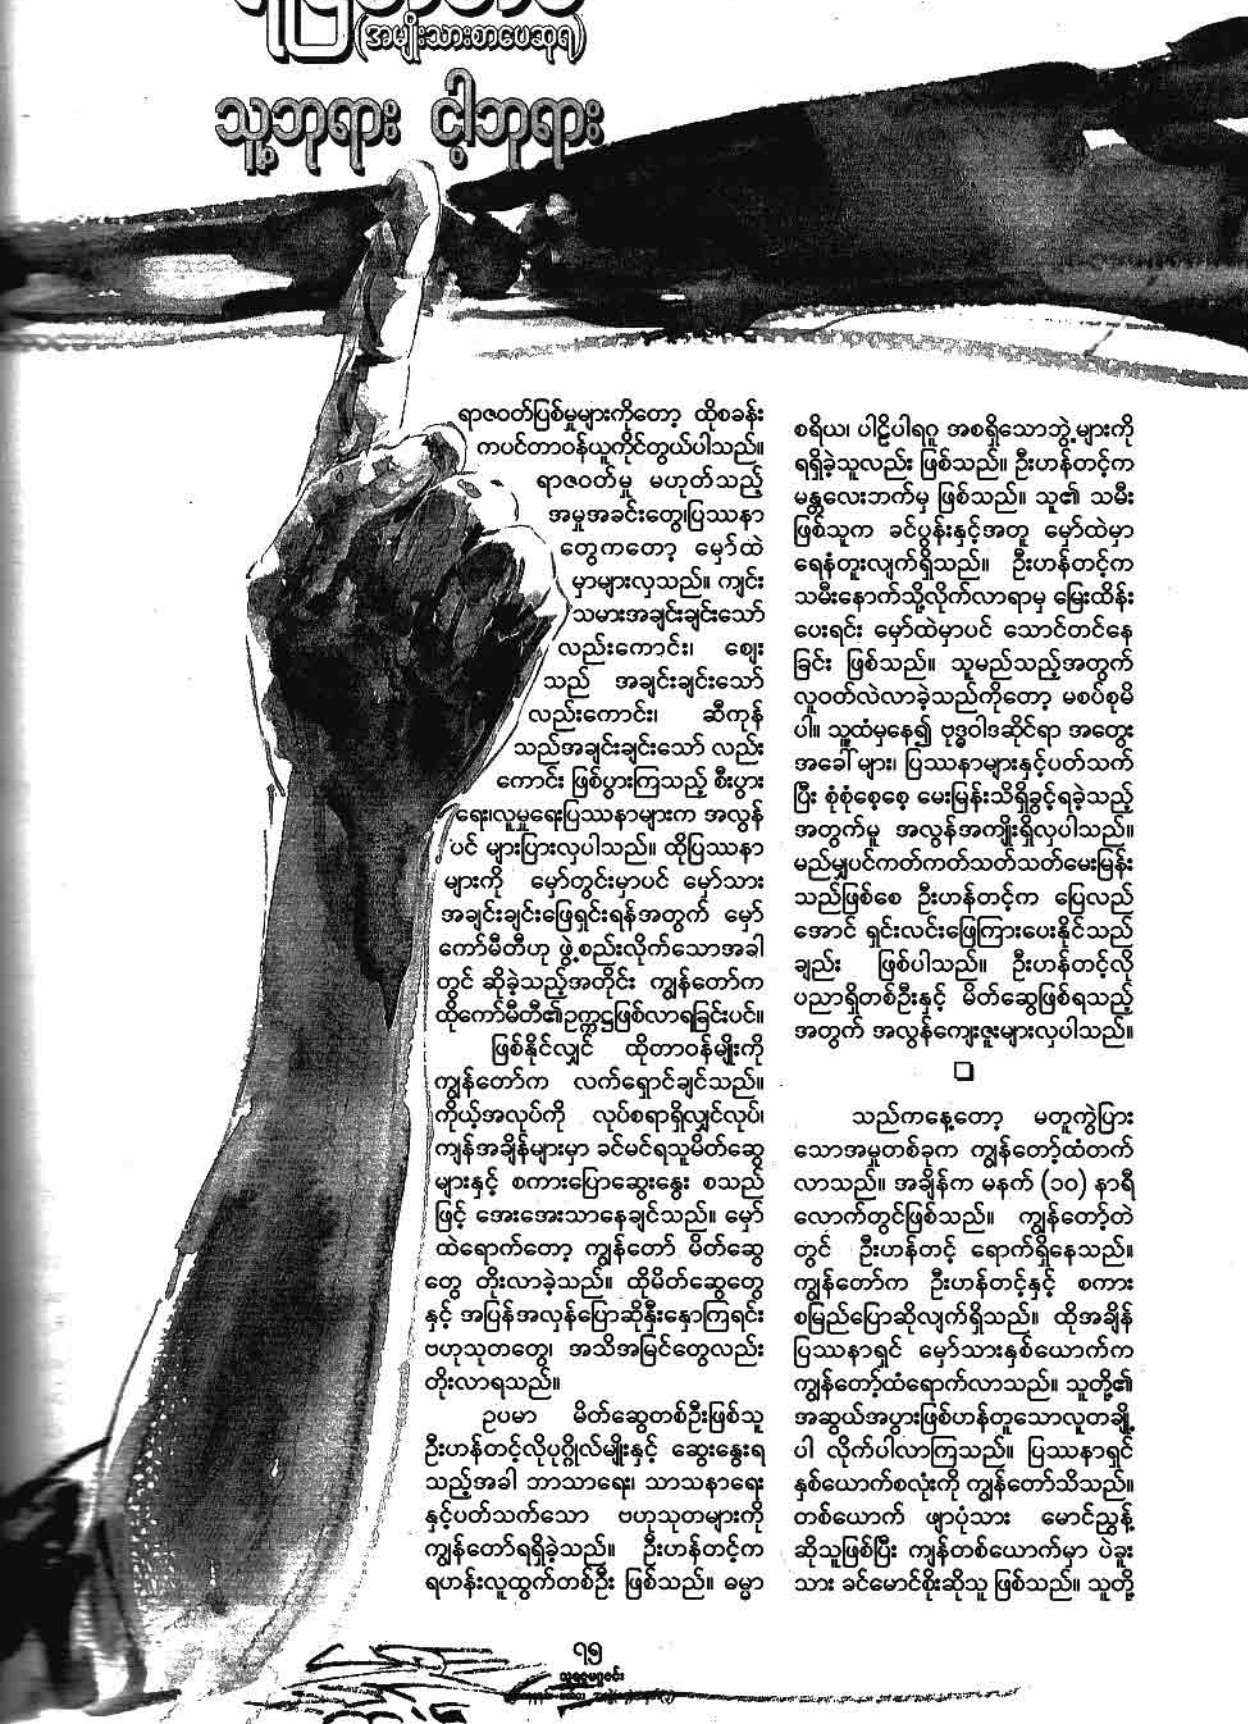 (အမျိုးသားစာပေဆုရ)
သူ့ဘုရား ငါ့ဘုရား
ရာဇဝတ်ပြစ်မှုများကိုတော့ ထိုစခန်း
ကပင်တာဝန်ယူကိုင်တွယ်ပါသည်။
ရာဇဝတ်မှု မဟုတ်သည့်
အမှုအခင်းတွေ၊ပြဿနာ
တွေကတော့ မှော်ထဲ
မှာများလှသည်။ ကျင်း
သမားအချင်းချင်းသော်
လည်းကောင်း၊ ဈေး
သည် အချင်းချင်းသော်
လည်းကောင်း၊ ဆီကုန်
သည်အချင်းချင်းသော် လည်း
ကောင်း ဖြစ်ပွားကြသည့် စီးပွား
ရေး၊လူမှုရေးပြဿနာများက အလွန်
ပင် များပြားလှပါသည်။ ထိုပြဿနာ
များကို မှော်တွင်းမှာပင် မှော်သား
အချင်းချင်းဖြေရှင်းရန်အတွက် မှော်
ကော်မီတီဟု ဖွဲ့စည်းလိုက်သောအခါ
တွင် ဆိုခဲ့သည့်အတိုင်း ကျွန်တော်က
ထိုကော်မီတီ၏ဥက္ကဋ္ဌဖြစ်လာရခြင်းပင်။
ဖြစ်နိုင်လျှင် ထိုတာဝန်မျိုးကို
ကျွန်တော်က လက်ရှောင်ချင်သည်။
ကိုယ့်အလုပ်ကို လုပ်စရာရှိလျှင်လုပ်၊
ကျန်အချိန်များမှာ ခင်မင်ရသူမိတ်ဆွေ
များနှင့် စကားပြောဆွေးနွေး စသည်
ဖြင့် အေးအေးသာနေချင်သည်။ မှော်
ထဲရောက်တော့ ကျွန်တော် မိတ်ဆွေ
တွေ တိုးလာခဲ့သည်။ ထိုမိတ်ဆွေတွေ
နှင့် အပြန်အလှန်ပြောဆိုနှီးနှောကြရင်း
ဗဟုသုတတွေ၊ အသိအမြင်တွေလည်း
တိုးလာရသည်။
ဥပမာ မိတ်ဆွေတစ်ဦးဖြစ်သူ
ဦးဟန်တင့်လိုပုဂ္ဂိုလ်မျိုးနှင့် ဆွေးနွေးရ
သည့်အခါ ဘာသာရေး၊ သာသနာရေး
နှင့်ပတ်သက်သော ဗဟုသုတများကို
ကျွန်တော်ရရှိခဲ့သည်။ ဦးဟန်တင့်က
ရဟန်းလူထွက်တစ်ဦး ဖြစ်သည်။ ဓမ္မာ
စရိယ၊ ပါဠိပါရဂူ အစရှိသောဘွဲ့များကို
ရရှိခဲ့သူလည်း ဖြစ်သည်။ ဦးဟန်တင့်က
မန္တလေးဘက်မှ ဖြစ်သည်။ သူ၏ သမီး
ဖြစ်သူက ခင်ပွန်းနှင့်အတူ မှော်ထဲမှာ
ရေနံတူးလျက်ရှိသည်။ ဦးဟန်တင့်က
သမီးနောက်သို့လိုက်လာရာမှ မြေးထိန်း
ပေးရင်း မှော်ထဲမှာပင် သောင်တင်နေ
ခြင်း ဖြစ်သည်။ သူမည်သည့်အတွက်
လူဝတ်လဲလာခဲ့သည်ကိုတော့ မစပ်စုမိ
ပါ။ သူ့ထံမှနေ၍ ဗုဒ္ဓဝါဒဆိုင်ရာ အတွေး
အခေါ်များ၊ ပြဿနာများနှင့်ပတ်သက်
ပြီး စုံစုံစေ့စေ့ မေးမြန်းသိရှိခွင့်ရခဲ့သည့်
အတွက်မူ အလွန်အကျိုးရှိလှပါသည်။
မည်မျှပင်ကတ်ကတ်သတ်သတ်မေးမြန်း
သည်ဖြစ်စေ ဦးဟန်တင့်က ပြေလည်
အောင် ရှင်းလင်းဖြေကြားပေးနိုင်သည်
ချည်း ဖြစ်ပါသည်။ ဦးဟန်တင့်လို
ပညာရှိတစ်ဦးနှင့် မိတ်ဆွေဖြစ်ရသည့်
အတွက် အလွန်ကျေးဇူးများလှပါသည်။
သည်ကနေ့တော့ မတူကွဲပြား
သောအမှုတစ်ခုက ကျွန်တော့်ထံတက်
လာသည်။ အချိန်က မနက် (၁၀) နာရီ
လောက်တွင်ဖြစ်သည်။ ကျွန်တော့်တဲ
တွင် ဦးဟန်တင့် ရောက်ရှိနေသည်။
ကျွန်တော်က ဦးဟန်တင့်နှင့် စကား
စမြည်ပြောဆိုလျက်ရှိသည်။ ထိုအချိန်
ပြဿနာရှင် မှော်သားနှစ်ယောက်က
ကျွန်တော့်ထံရောက်လာသည်။ သူတို့၏
အဆွယ်အပွားဖြစ်ဟန်တူသောလူတချို့
ပါ လိုက်ပါလာကြသည်။ ပြဿနာရှင်
နှစ်ယောက်စလုံးကို ကျွန်တော်သိသည်။
တစ်ယောက် ဖျာပုံသား မောင်ညွန့်
ဆိုသူဖြစ်ပြီး ကျန်တစ်ယောက်မှာ ပဲခူး
သား ခင်မောင်စိုးဆိုသူ ဖြစ်သည်။ သူတို့
၇၅